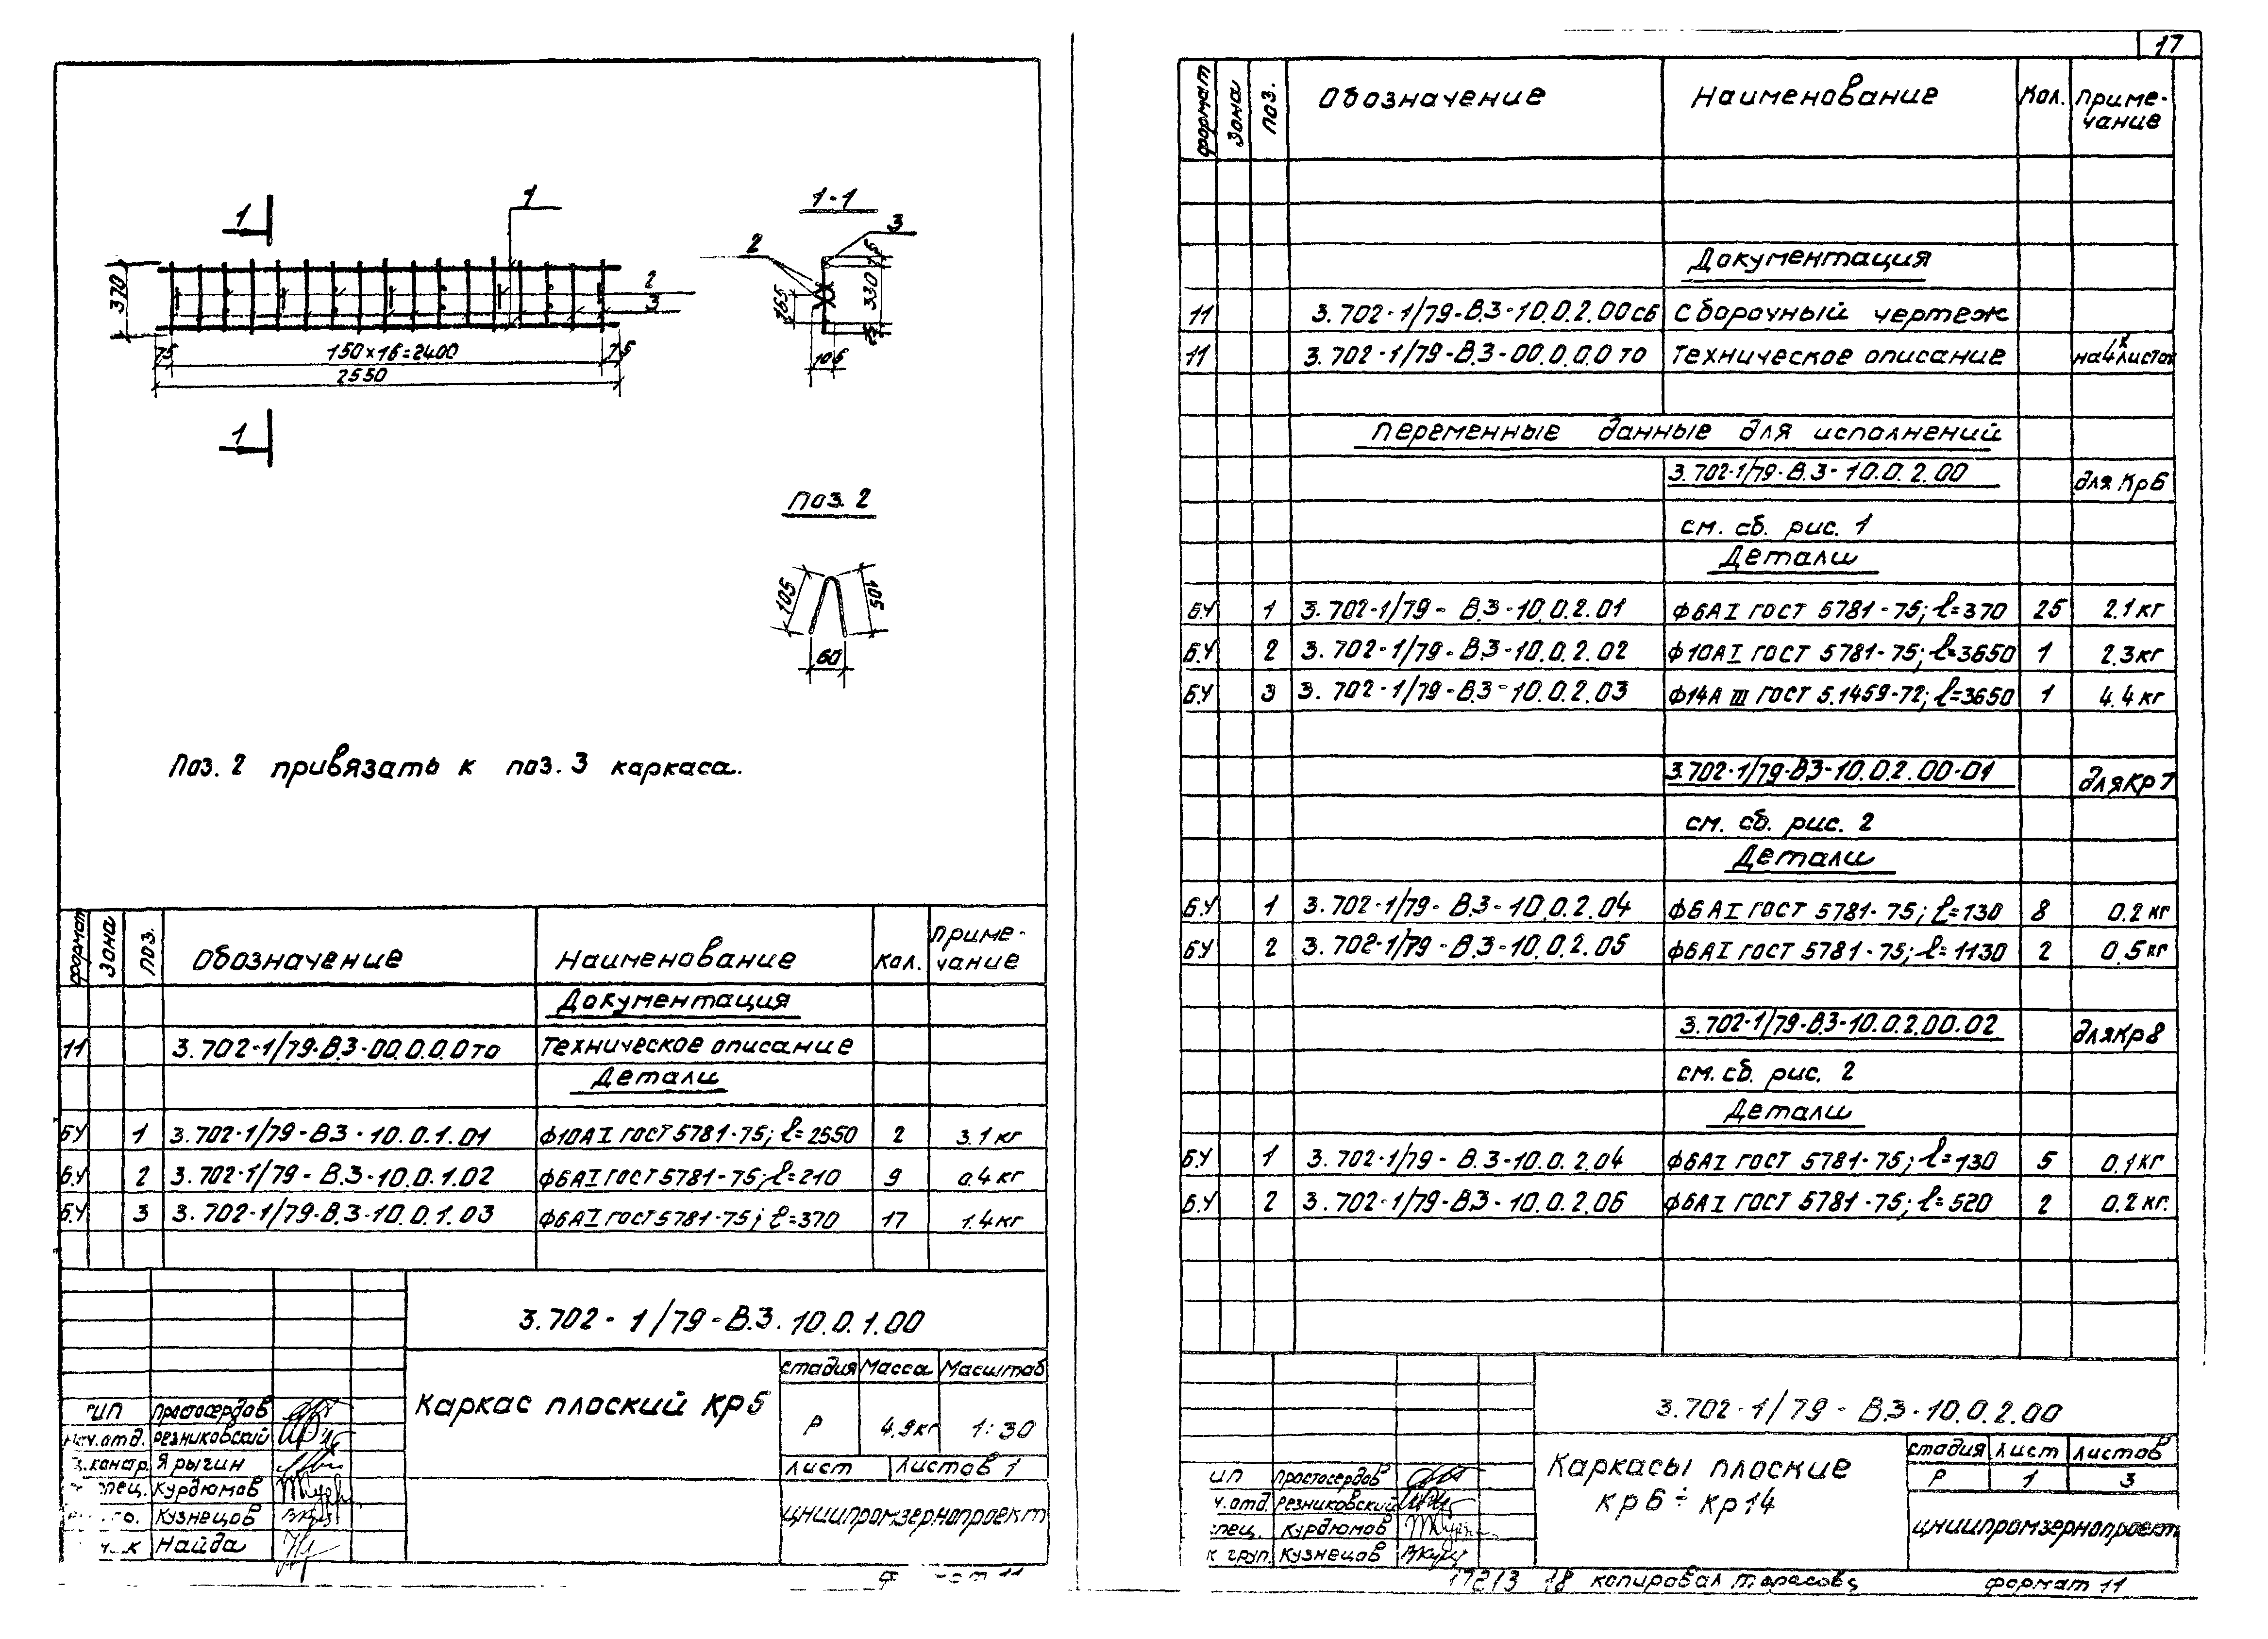 17
1
1
1
370
2
3
75
150×16=2400
75
2550
1-1
3
2
165
330
25
10
6
Поз. 2
105
105
60
Поз. 2 привязать к поз. 3 каркаса.
формат Зона Поз. Обозначение Наименование Кол. Приме-
чание
Документация
11 3.702-1/79-В.3-00.0.0.0то Техническое описание
Детали
Б.Ч 1 3.702-1/79-В3-10.0.1.01 ф10АI ГОСТ 5781-75; ℓ=2550 2 3.1 кг
Б.Ч 2 3.702-1/79-В.3-10.0.1.02 ф6АI ГОСТ 5781-75; ℓ=210 9 0.4 кг
Б.Ч 3 3.702-1/79-В.3-10.0.1.03 ф6АI ГОСТ 5781-75; ℓ=370 17 1.4 кг
3.702-1/79-В.3.10.0.1.00
Каркас плоский Кр5
стадия Масса Масштаб
Р 4.9кг 1:30
лист листов 1
ЦНИИпромзернопроект
ИП Простосердов
нач.отд. Резниковский
констр. Ярыгин
спец. Курдюмов
Кузнецов
Найда
формат Зона Поз. Обозначение Наименование Кол. Приме-
чание
Документация
11 3.702-1/79-В.3-10.0.2.00сб Сборочный чертеж
11 3.702-1/79-В.3-00.0.0.0 то Техническое описание на 4х листах
Переменные данные для исполнений
3.702-1/79-В.3-10.0.2.00 для Кр6
см. сб. рис. 1
Детали
Б.Ч 1 3.702-1/79-В.3-10.0.2.01 ф6АI ГОСТ 5781-75; ℓ=370 25 2.1 кг
Б.Ч 2 3.702-1/79-В.3-10.0.2.02 ф10АI ГОСТ 5781-75; ℓ=3650 1 2.3кг
Б.Ч 3 3.702-1/79-В.3-10.0.2.03 ф14А III ГОСТ 5.1459-72; ℓ=3650 1 4.4 кг
3.702-1/79-В3-10.0.2.00-01 для Кр 7
см. сб. рис. 2
Детали
Б.Ч 1 3.702-1/79-В.3-10.0.2.04 ф6АI ГОСТ 5781-75; ℓ=130 8 0.2 кг
Б.Ч 2 3.702-1/79-В.3-10.0.2.05 ф6АI ГОСТ 5781-75; ℓ=1130 2 0.5 кг
3.702-1/79-В.3-10.0.2.00.02 для Кр 8
см. сб. рис. 2
Детали
Б.Ч 1 3.702-1/79-В.3-10.0.2.04 ф6АI ГОСТ 5781-75; ℓ=130 5 0.1 кг
Б.Ч 2 3.702-1/79-В.3-10.0.2.06 ф6АI ГОСТ 5781-75; ℓ=520 2 0.2 кг.
3.702-1/79-В.3-10.0.2.00
Каркасы плоские
кр6÷кр14
стадия лист листов
Р 1 3
ЦНИИпромзернопроект
ИП Простосердов
ч.отд. Резниковский
спец. Курдюмов
к груп. Кузнецов
17213 18 копировал Тарасова
формат 11